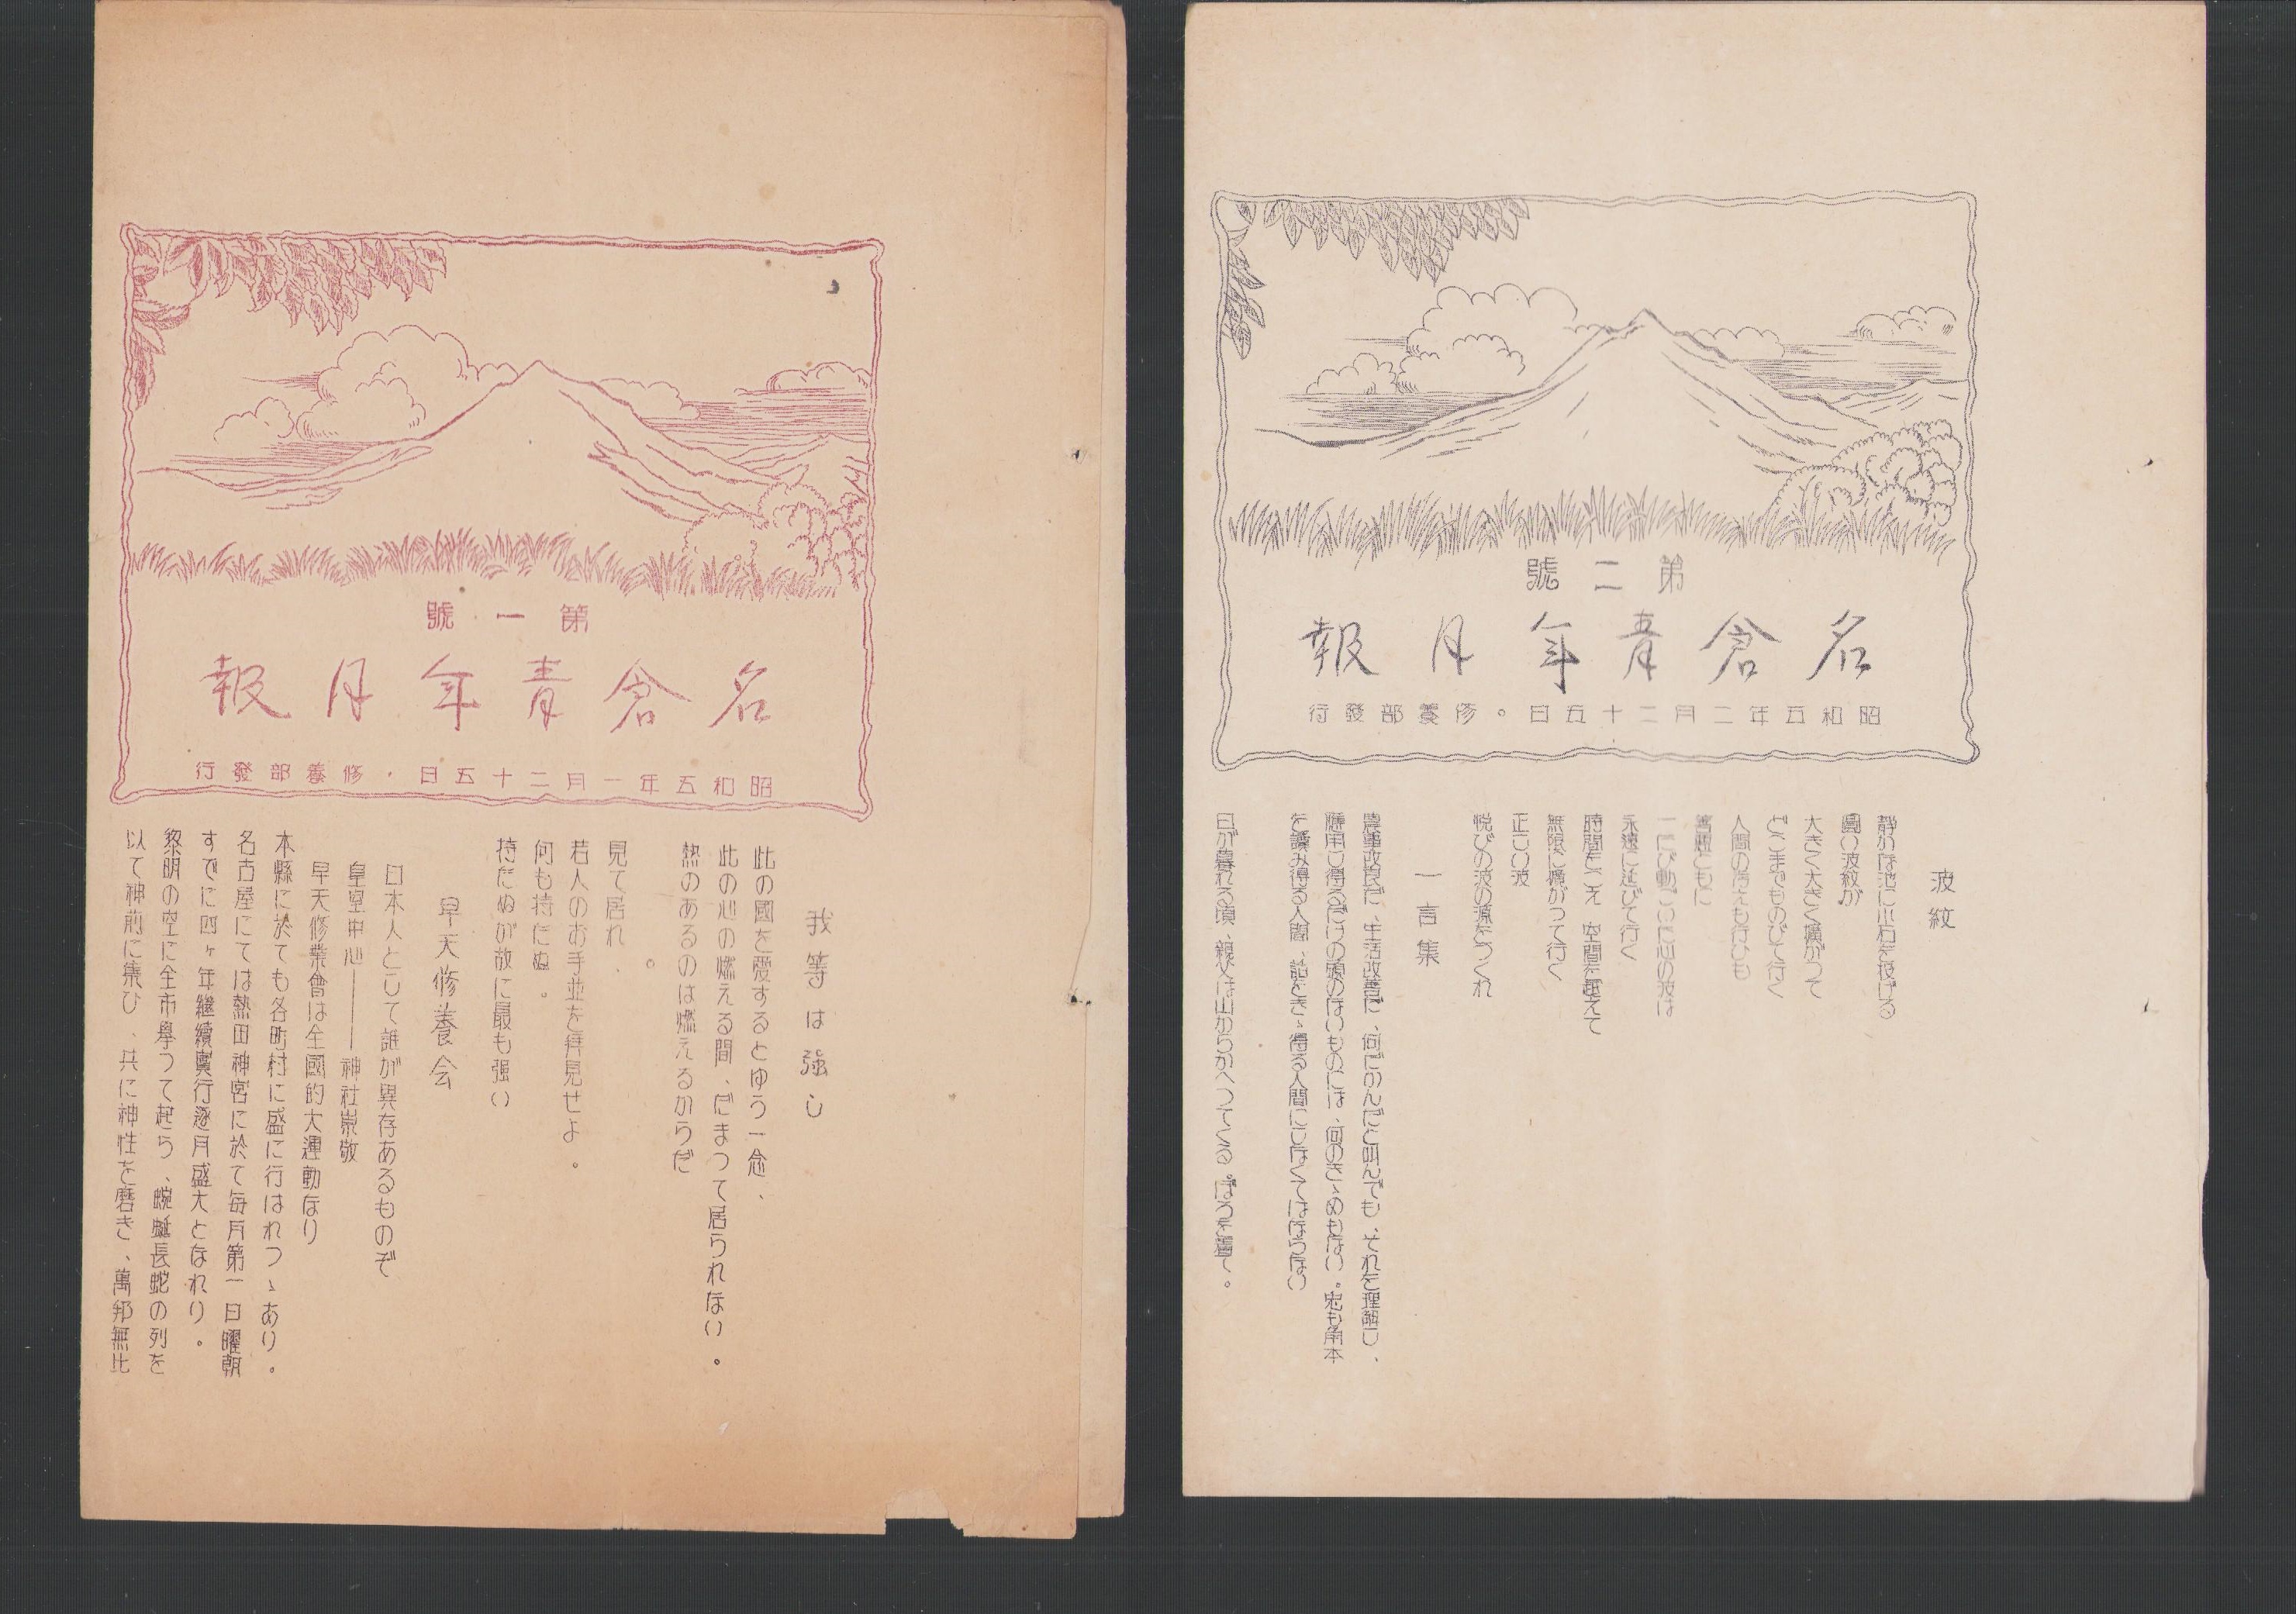 第一號
名倉青年月報
昭和五年一月二十五日・修養部發行
我等は强し
此の國を愛するとゆう一念、
此の心の燃える間、だまつて居られない。
熱のあるのは燃えるからだ
。
見て居れ、
若人のお手並を拝見せよ。
何も持たぬ。
持たぬが故に最も强い
早天修養会
日本人として誰が異存あるものぞ
皇室中心———神社崇敬
早天修養會は全國的大運動なり
本縣に於ても各町村に盛に行はれつゝあり。
名古屋にては熱田神宮に於て毎月第一日曜朝
すでに四ヶ年継續實行逐月盛大となれり。
黎明の空に全市擧つて起ち、蜿蜒長蛇の列を
以て神前に集ひ、共に神性を磨き、萬邦無比
第二號
名倉青年月報
昭和五年二月二十五日。修養部發行
波紋
静かな池に小石を投げる
圓い波紋が
大きく大きく擴がつて
どこまでものびて行く
人間の考えも行ひも
善悪ともに
一たび動こいた心の波は
永遠に延びて行く
時間をこえ 空間を越えて
無限に擴がつて行く
正しい波
悦びの波の源をつくれ
一言集
農事改良だ、生活改善だ、何だかんだと叫んでも、それを理解し、
應用し得るだけの頭のないものには、何のきゝめもない。先も角本
を讀み得る人間、話をきゝ得る人間にしなくてはならない
日が暮れる頃、親父は山からかへつてくる。ぼろを着て。